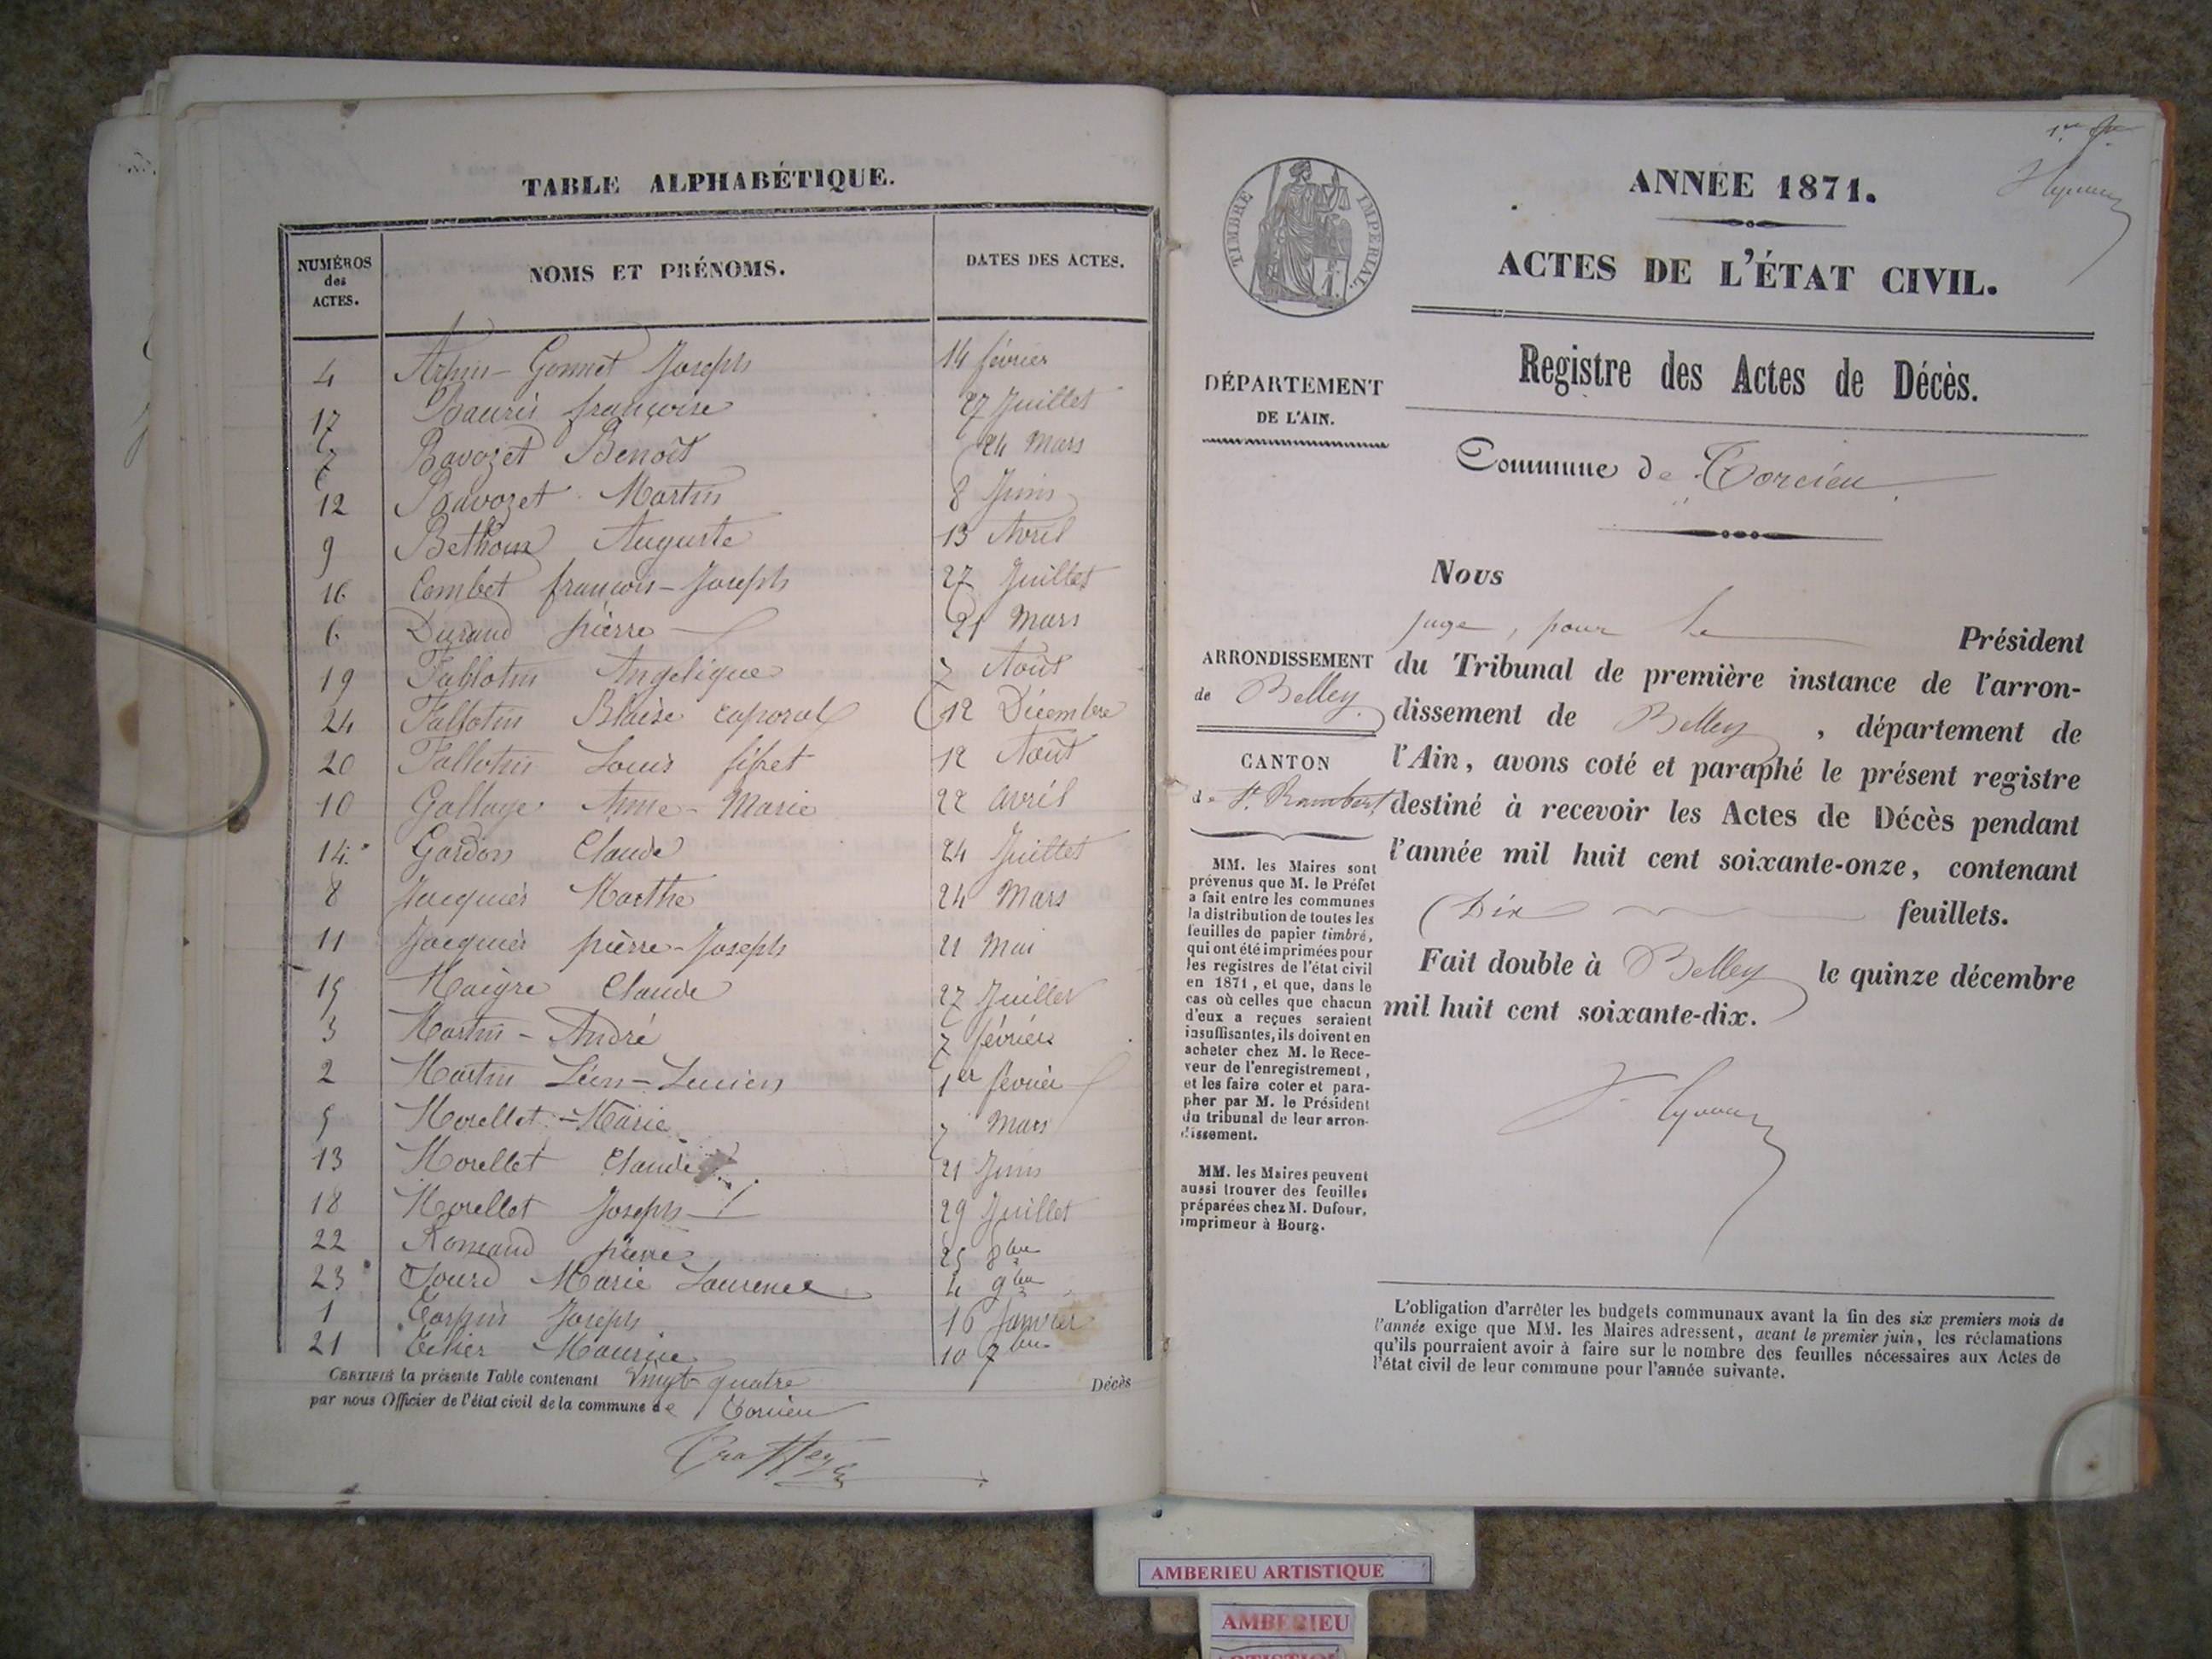 TABLE ALPHABÉTIQUE.
NUMÉROS des ACTES. NOMS ET PRÉNOMS. DATES DES ACTES.
4 Gonnet Joseph 14 février
17 françoise 27 Juillet
7 Bavozet Benoît 24 Mars
12 Bavozet Martin 8 Juin
9 Bethoux Auguste 13 Avril
16 Combet françois-Joseph 27 Juillet
6 Durand pierre 21 Mars
19 Fallotin Angelique 7 Août
24 Fallotin Blaise caporal 12 Décembre
20 Fallotin Louis 12 Août
10 Gallaye Anne-Marie 22 avril
14. Gardon Claude 24 Juillet
8 Jacquier Marthe 24 Mars
11 Jacquier pierre-Joseph 21 Mai
15 Maigre Claude 27 Juillet
3 Martin - André 7 février
2 Martin Léon-Lucien 1er février
5 Morellet - Marie 7 Mars
13 Morellet Claude 21 Juin
18 Morellet Joseph 29 Juillet
22 Romand pierre 25 8bre
23 Marie Laurence 4 9bre
1 Joseph 16 Janvier
21 Maurice 10 7bre
CERTIFIÉ la présente Table contenant Vingt-quatre Décès
par nous Officier de l'état civil de la commune de Torcieu
TIMBRE IMPÉRIAL.
ANNÉE 1871.
ACTES DE L'ÉTAT CIVIL.
Registre des Actes de Décès.
Commune de Torcieu.
DÉPARTEMENT
DE L'AIN.
ARRONDISSEMENT
de Belley.
CANTON
de St. Rambert
MM. les Maires sont
prévenus que M. le Préfet
a fait entre les communes
la distribution de toutes les
feuilles de papier timbré,
qui ont été imprimées pour
les registres de l'état civil
en 1871, et que, dans le
cas où celles que chacun
d'eux a reçues seraient
insuffisantes, ils doivent en
acheter chez M. le Rece-
veur de l'enregistrement,
et les faire coter et para-
pher par M. le Président
du tribunal de leur arron-
dissement.
MM. les Maires peuvent
aussi trouver des feuilles
préparées chez M. Dufour,
imprimeur à Bourg.
Nous
juge, pour le Président
du Tribunal de première instance de l'arron-
dissement de Belley, département de
l'Ain, avons coté et paraphé le présent registre
destiné à recevoir les Actes de Décès pendant
l'année mil huit cent soixante-onze, contenant
Dix feuillets.
Fait double à Belley le quinze décembre
mil huit cent soixante-dix.
L'obligation d'arrêter les budgets communaux avant la fin des six premiers mois de
l'année exige que MM. les Maires adressent, avant le premier juin, les réclamations
qu'ils pourraient avoir à faire sur le nombre des feuilles nécessaires aux Actes de
l'état civil de leur commune pour l'année suivante.
AMBERIEU ARTISTIQUE
AMBERIEU
ARTISTIQUE